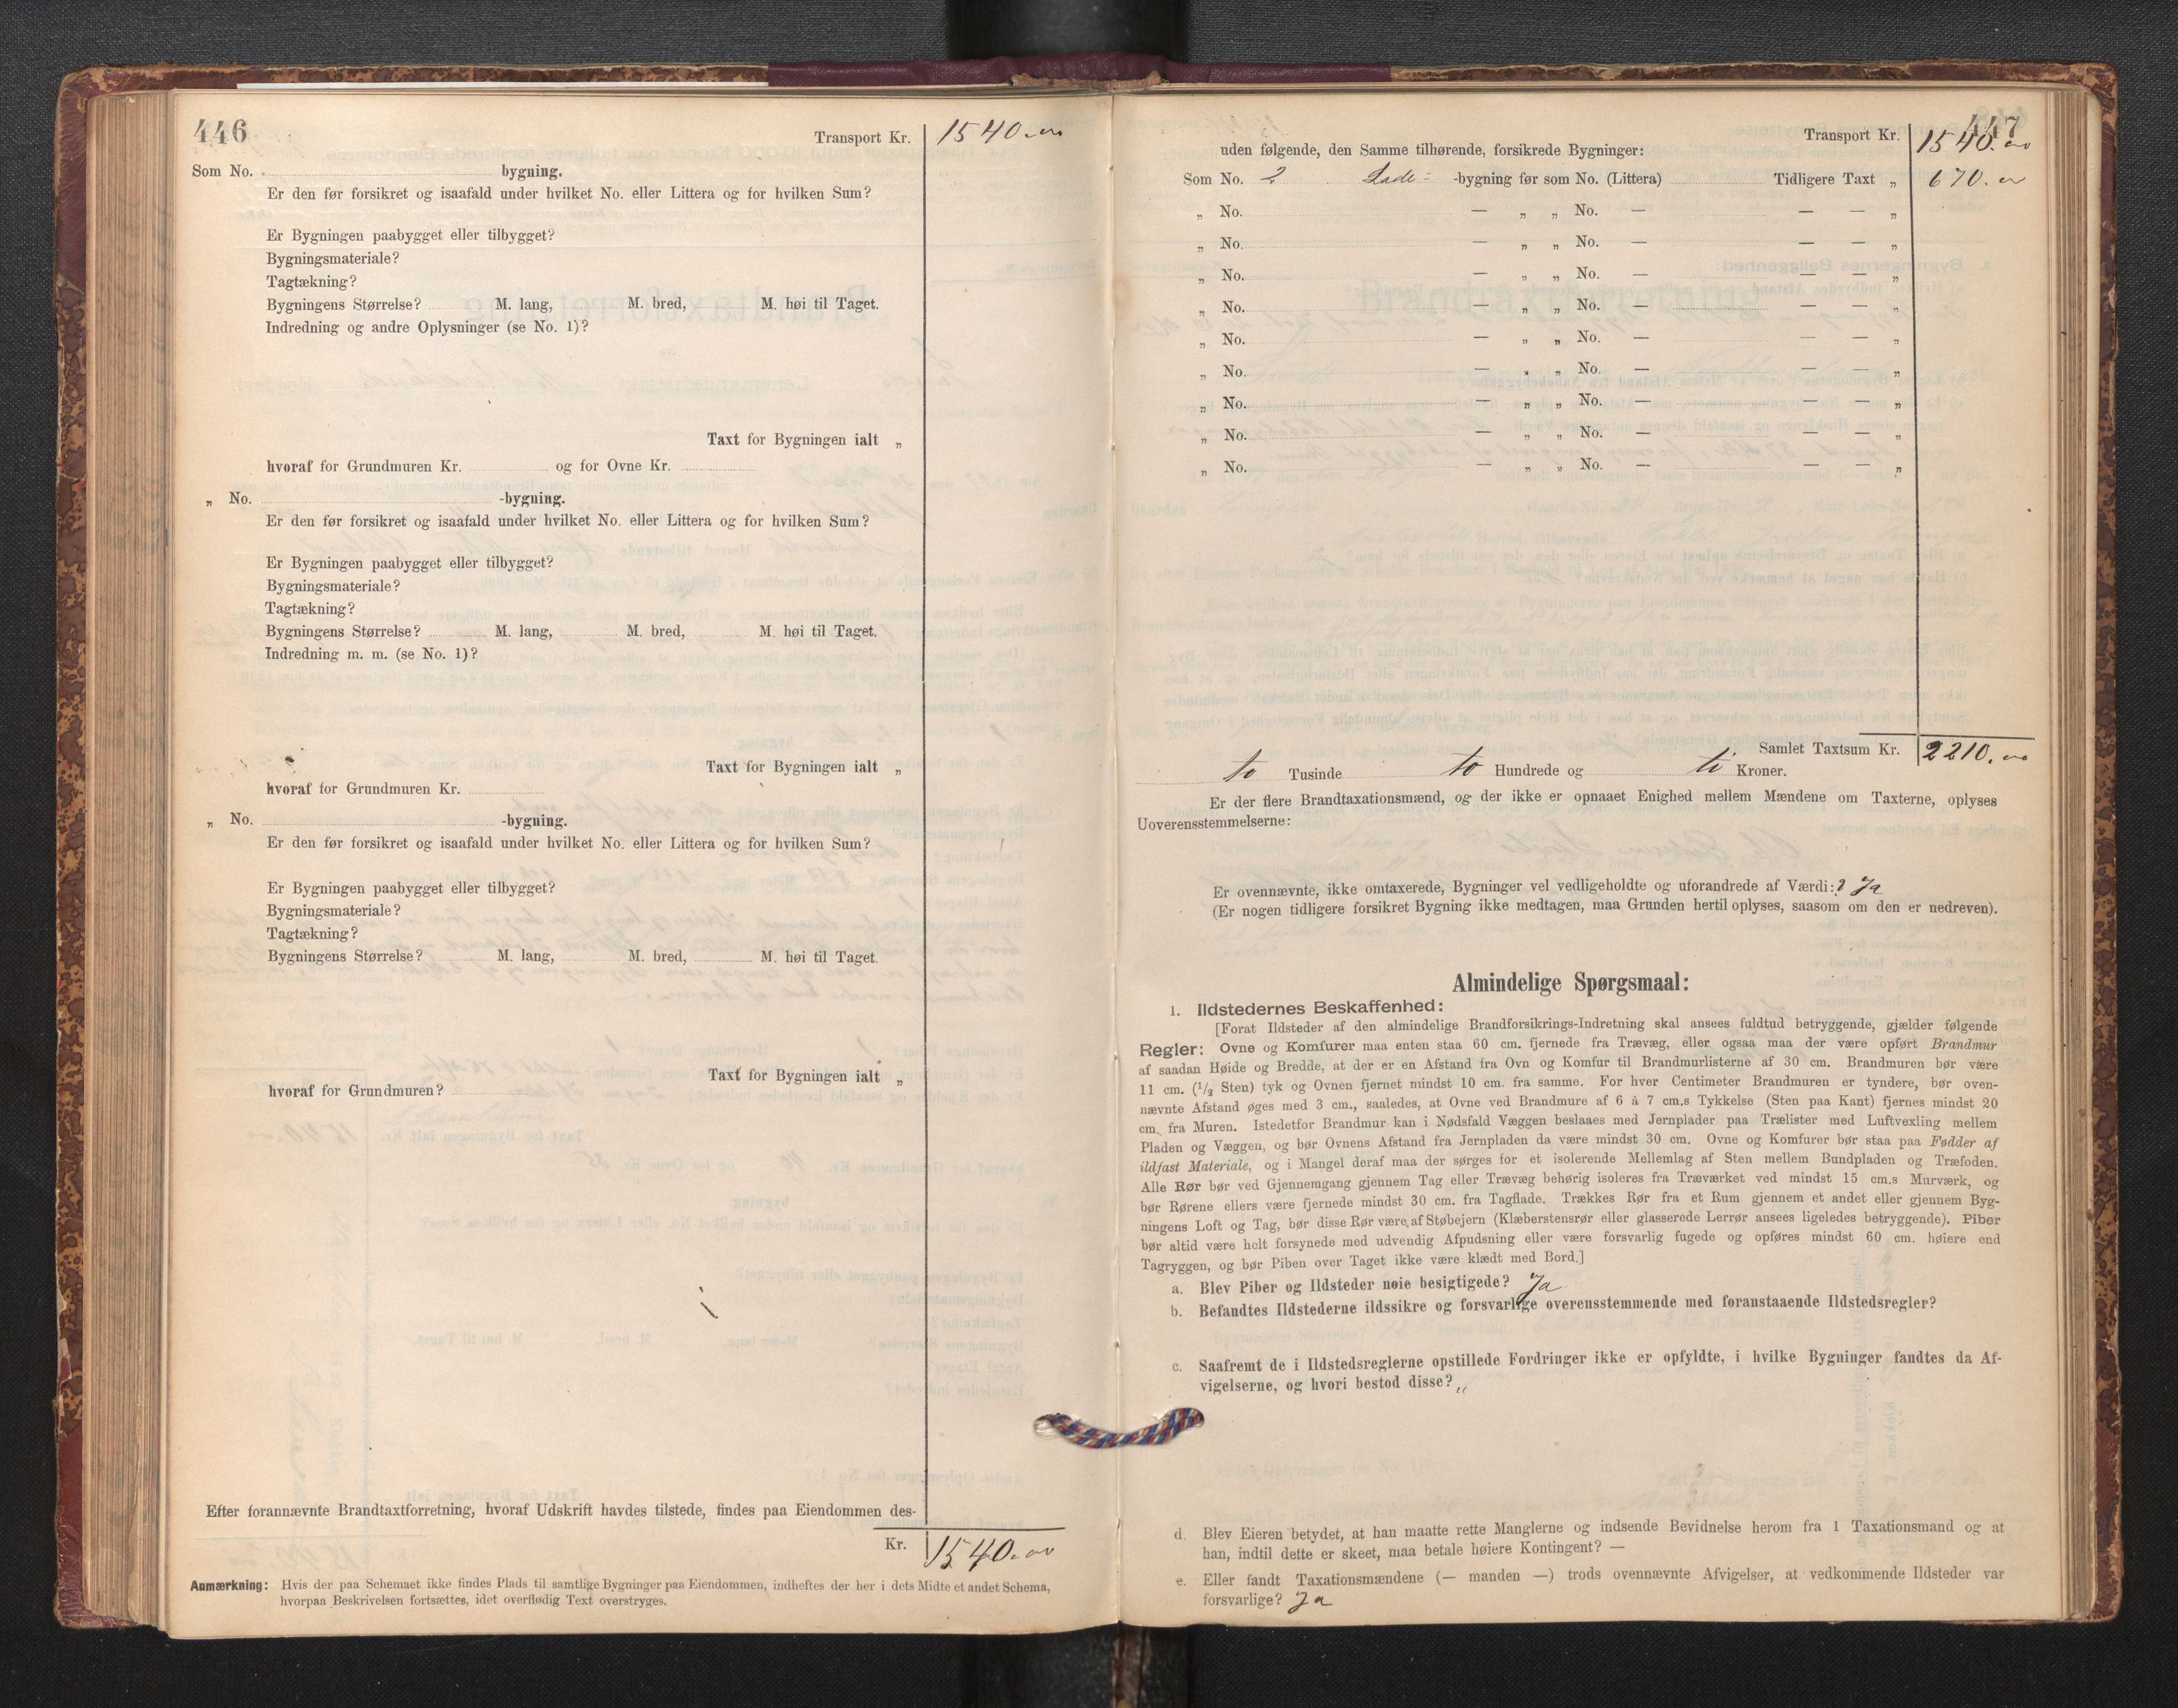 446
Transport Kr. 1540.
Som No. bygning.
Er den før forsikret og isaafald under hvilket No. eller Littera og for hvilken Sum?
Er Bygningen paabygget eller tilbygget?
Bygningsmateriale?
Tagtækning?
Bygningens Størrelse? M. lang, M. bred, M. høi til Taget.
Indredning og andre Oplysninger (se No. 1)?
Taxt for Bygningen ialt „
hvoraf for Grundmuren Kr. og for Ovne Kr.
„ No. -bygning.
Er den før forsikret og isaafald under hvilket No. eller Littera og for hvilken Sum?
Er Bygningen paabygget eller tilbygget?
Bygningsmateriale?
Tagtækning?
Bygningens Størrelse? M. lang, M. bred, M. høi til Taget.
Indredning m. m. (se No. 1)?
Taxt for Bygningen ialt „
hvoraf for Grundmuren Kr.
„ No. -bygning.
Er den før forsikret og isaafald under hvilket No. eller Littera og for hvilken Sum?
Er Bygningen paabygget eller tilbygget?
Bygningsmateriale?
Tagtækning?
Bygningens Størrelse? M. lang, M. bred, M. høi til Taget.
Taxt for Bygningen ialt „
hvoraf for Grundmuren?
Efter forannævnte Brandtaxtforretning, hvoraf Udskrift havdes tilstede, findes paa Eiendommen des-
Kr. 1540.
Anmærkning: Hvis der paa Schemaet ikke findes Plads til samtlige Bygninger paa Eiendommen, indheftes der her i dets Midte et andet Schema,
hvorpaa Beskrivelsen fortsættes, idet overflødig Text overstryges.
447
Transport Kr. 1540.
uden følgende, den Samme tilhørende, forsikrede Bygninger:
Som No. 2 Lade- -bygning før som No. (Littera) Tidligere Taxt „ 670.
„ No. — „ „ No. — — — „
„ No. — „ „ No. — — — „
„ No. — „ „ No. — — — „
„ No. — „ „ No. — — — „
„ No. — „ „ No. — — — „
„ No. — „ „ No. — — — „
„ No. — „ „ No. — — — „
„ No. — „ „ No. — — — „
„ No. — „ „ No. — — — „
Samlet Taxtsum Kr. 2210.
to Tusinde to Hundrede og ti Kroner.
Er der flere Brandtaxationsmænd, og der ikke er opnaaet Enighed mellem Mændene om Taxterne, oplyses
Uoverensstemmelserne:
Er ovennævnte, ikke omtaxerede, Bygninger vel vedligeholdte og uforandrede af Værdi:? Ja
(Er nogen tidligere forsikret Bygning ikke medtagen, maa Grunden hertil oplyses, saasom om den er nedreven).
Almindelige Spørgsmaal:
1. Ildstedernes Beskaffenhed:
[Forat Ildsteder af den almindelige Brandforsikrings-Indretning skal ansees fuldtud betryggende, gjælder følgende
Regler: Ovne og Komfurer maa enten staa 60 cm. fjernede fra Trævæg, eller ogsaa maa der være opført Brandmur
af saadan Høide og Bredde, at der er en Afstand fra Ovn og Komfur til Brandmurlisterne af 30 cm. Brandmuren bør være
11 cm. (1/2 Sten) tyk og Ovnen fjernet mindst 10 cm. fra samme. For hver Centimeter Brandmuren er tyndere, bør oven-
nævnte Afstand øges med 3 cm., saaledes, at Ovne ved Brandmure af 6 à 7 cm.s Tykkelse (Sten paa Kant) fjernes mindst 20
cm. fra Muren. Istedetfor Brandmur kan i Nødsfald Væggen beslaaes med Jernplader paa Trælister med Luftvexling mellem
Pladen og Væggen, og bør Ovnens Afstand fra Jernpladen da være mindst 30 cm. Ovne og Komfurer bør staa paa Fødder af
ildfast Materiale, og i Mangel deraf maa der sørges for et isolerende Mellemlag af Sten mellem Bundpladen og Træfoden.
Alle Rør bør ved Gjennemgang gjennem Tag eller Trævæg behørig isoleres fra Træværket ved mindst 15 cm.s Murværk, og
bør Rørene ellers være fjernede mindst 30 cm. fra Tagflade. Trækkes Rør fra et Rum gjennem et andet eller gjennem Byg-
ningens Loft og Tag, bør disse Rør være af Støbejern (Klæberstensrør eller glasserede Lerrør ansees ligeledes betryggende). Piber
bør altid være helt forsynede med udvendig Afpudsning eller være forsvarlig fugede og opføres mindst 60 cm. høiere end
Tagryggen, og bør Piben over Taget ikke være klædt med Bord.]
a. Blev Piber og Ildsteder nøie besigtigede? Ja
b. Befandtes Ildstederne ildssikre og forsvarlige overensstemmende med foranstaaende Ildstedsregler?
c. Saafremt de i Ildstedsreglerne opstillede Fordringer ikke er opfyldte, i hvilke Bygninger fandtes da Af-
vigelserne, og hvori bestod disse? „
d. Blev Eieren betydet, at han maatte rette Manglerne og indsende Bevidnelse herom fra 1 Taxationsmand og at
han, indtil dette er skeet, maa betale høiere Kontingent? —
e. Eller fandt Taxationsmændene (— manden —) trods ovennævnte Afvigelser, at vedkommende Ildsteder var
forsvarlige? Ja